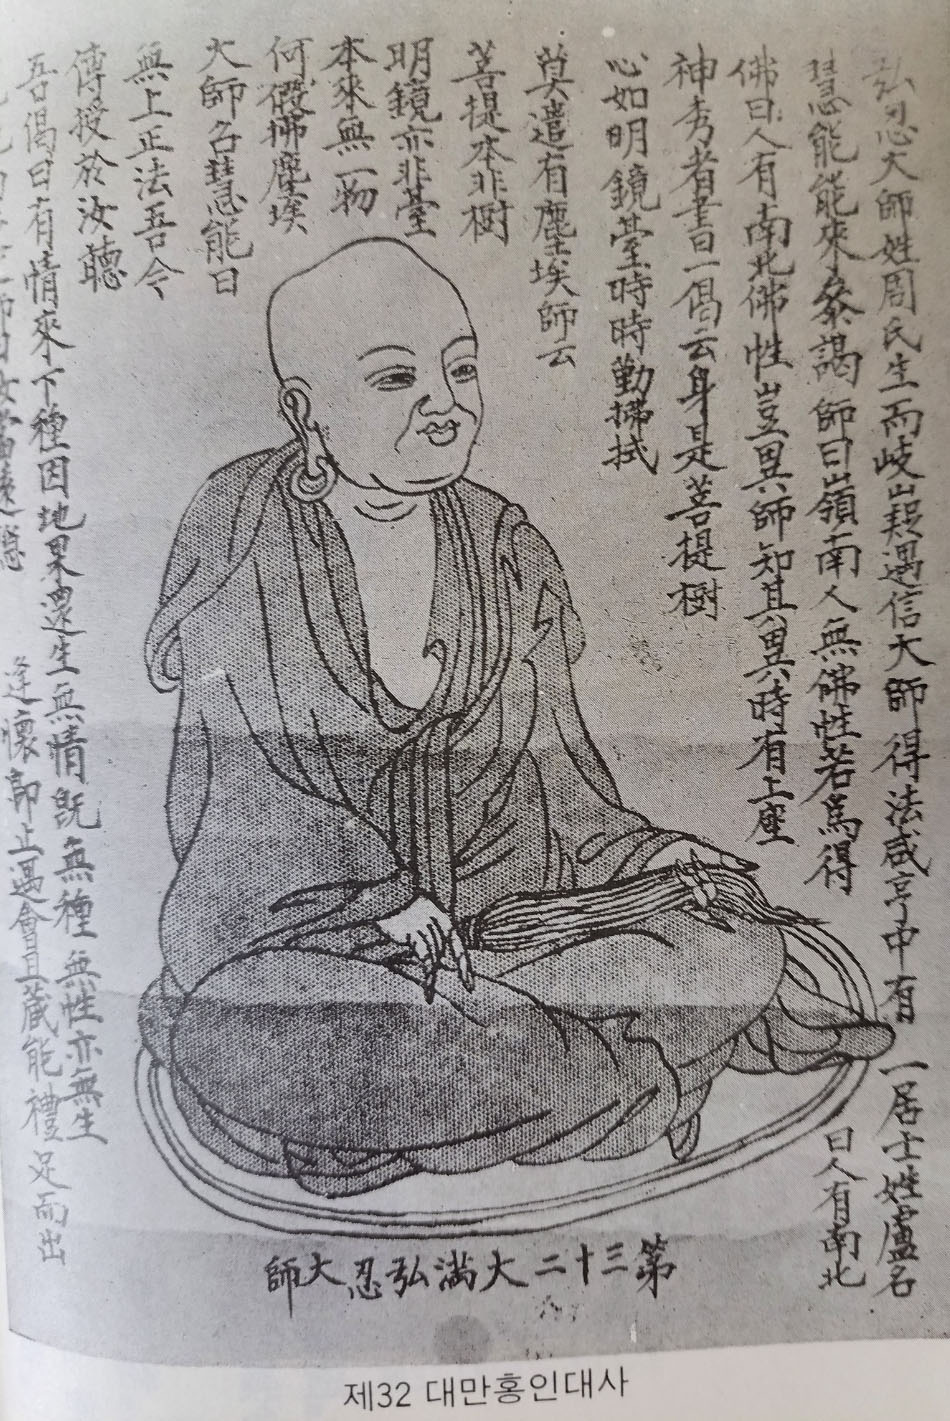 弘忍大師姓周氏生而岐嶷遇信大師得法咸亨中有 一居士姓盧名
慧能能來叅謁師曰嶺南人無佛性若爲得 曰人有南北
佛曰人有南北佛性豈異師知其異時有上座
神秀者書一偈云身是菩提樹
心如明鏡臺時時勤拂拭
莫遣有塵埃師云
菩提本非樹
明鏡亦非臺
本來無一物
何假拂塵埃
大師召慧能曰
無上正法吾今
傳授於汝聽
吾偈曰有情來下種因地果還生無情旣無種無性亦無生
師曰汝當遠隱 逢懷即止遇會且藏能禮足而出
第三十二大滿弘忍大師
제32 대만홍인대사